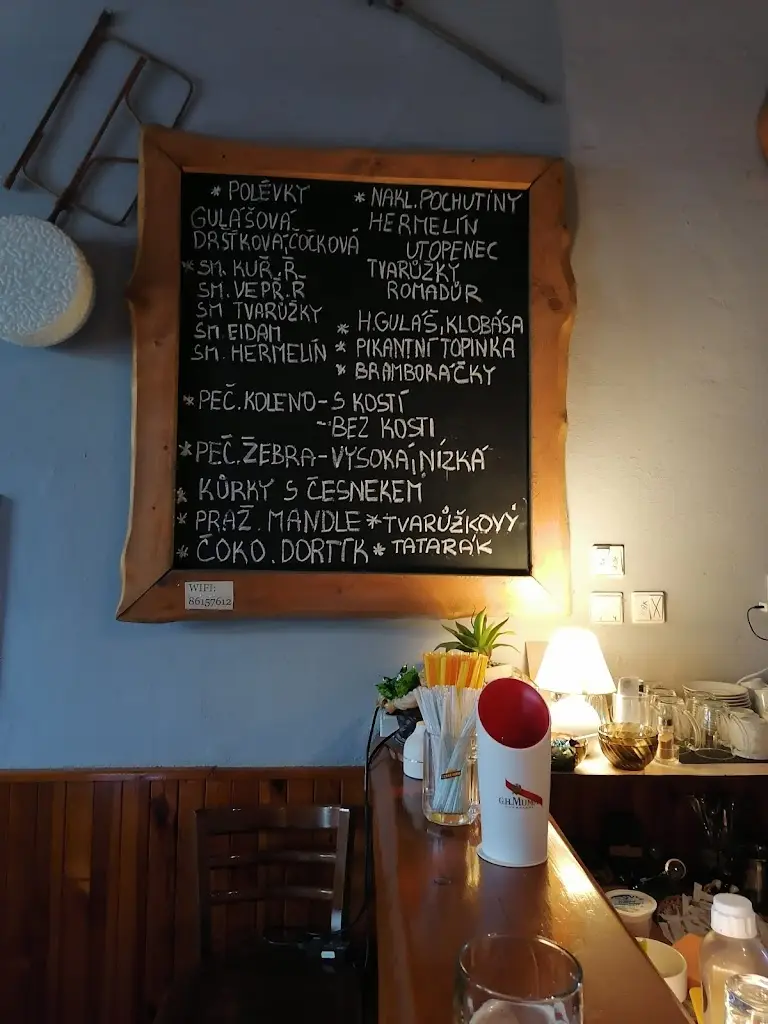 * POLÉVKY
GULÁŠOVÁ
DRŠŤKOVÁ,ČOČKOVÁ
* SM. KUŘ. Ř.
SM. VEPŘ. Ř
SM TVARŮŽKY
SM. EIDAM
SM. HERMELÍN
* NAKL. POCHUTINY
HERMELÍN
UTOPENEC
TVARŮŽKY
ROMADŮR
* H.GULÁŠ, KLOBÁSA
* PIKANTNÍ TOPINKA
* BRAMBORÁČKY
* PEČ. KOLENO - S KOSTÍ
- BEZ KOSTI
* PEČ. ŽEBRA - VYSOKÁ, NÍZKÁ
* KŮRKY S ČESNEKEM
* PRAŽ. MANDLE * TVARŮŽKOVÝ
* ČOKO. DORTÍK * TATARÁK
WIFI:
86157612
G.H.MUMM